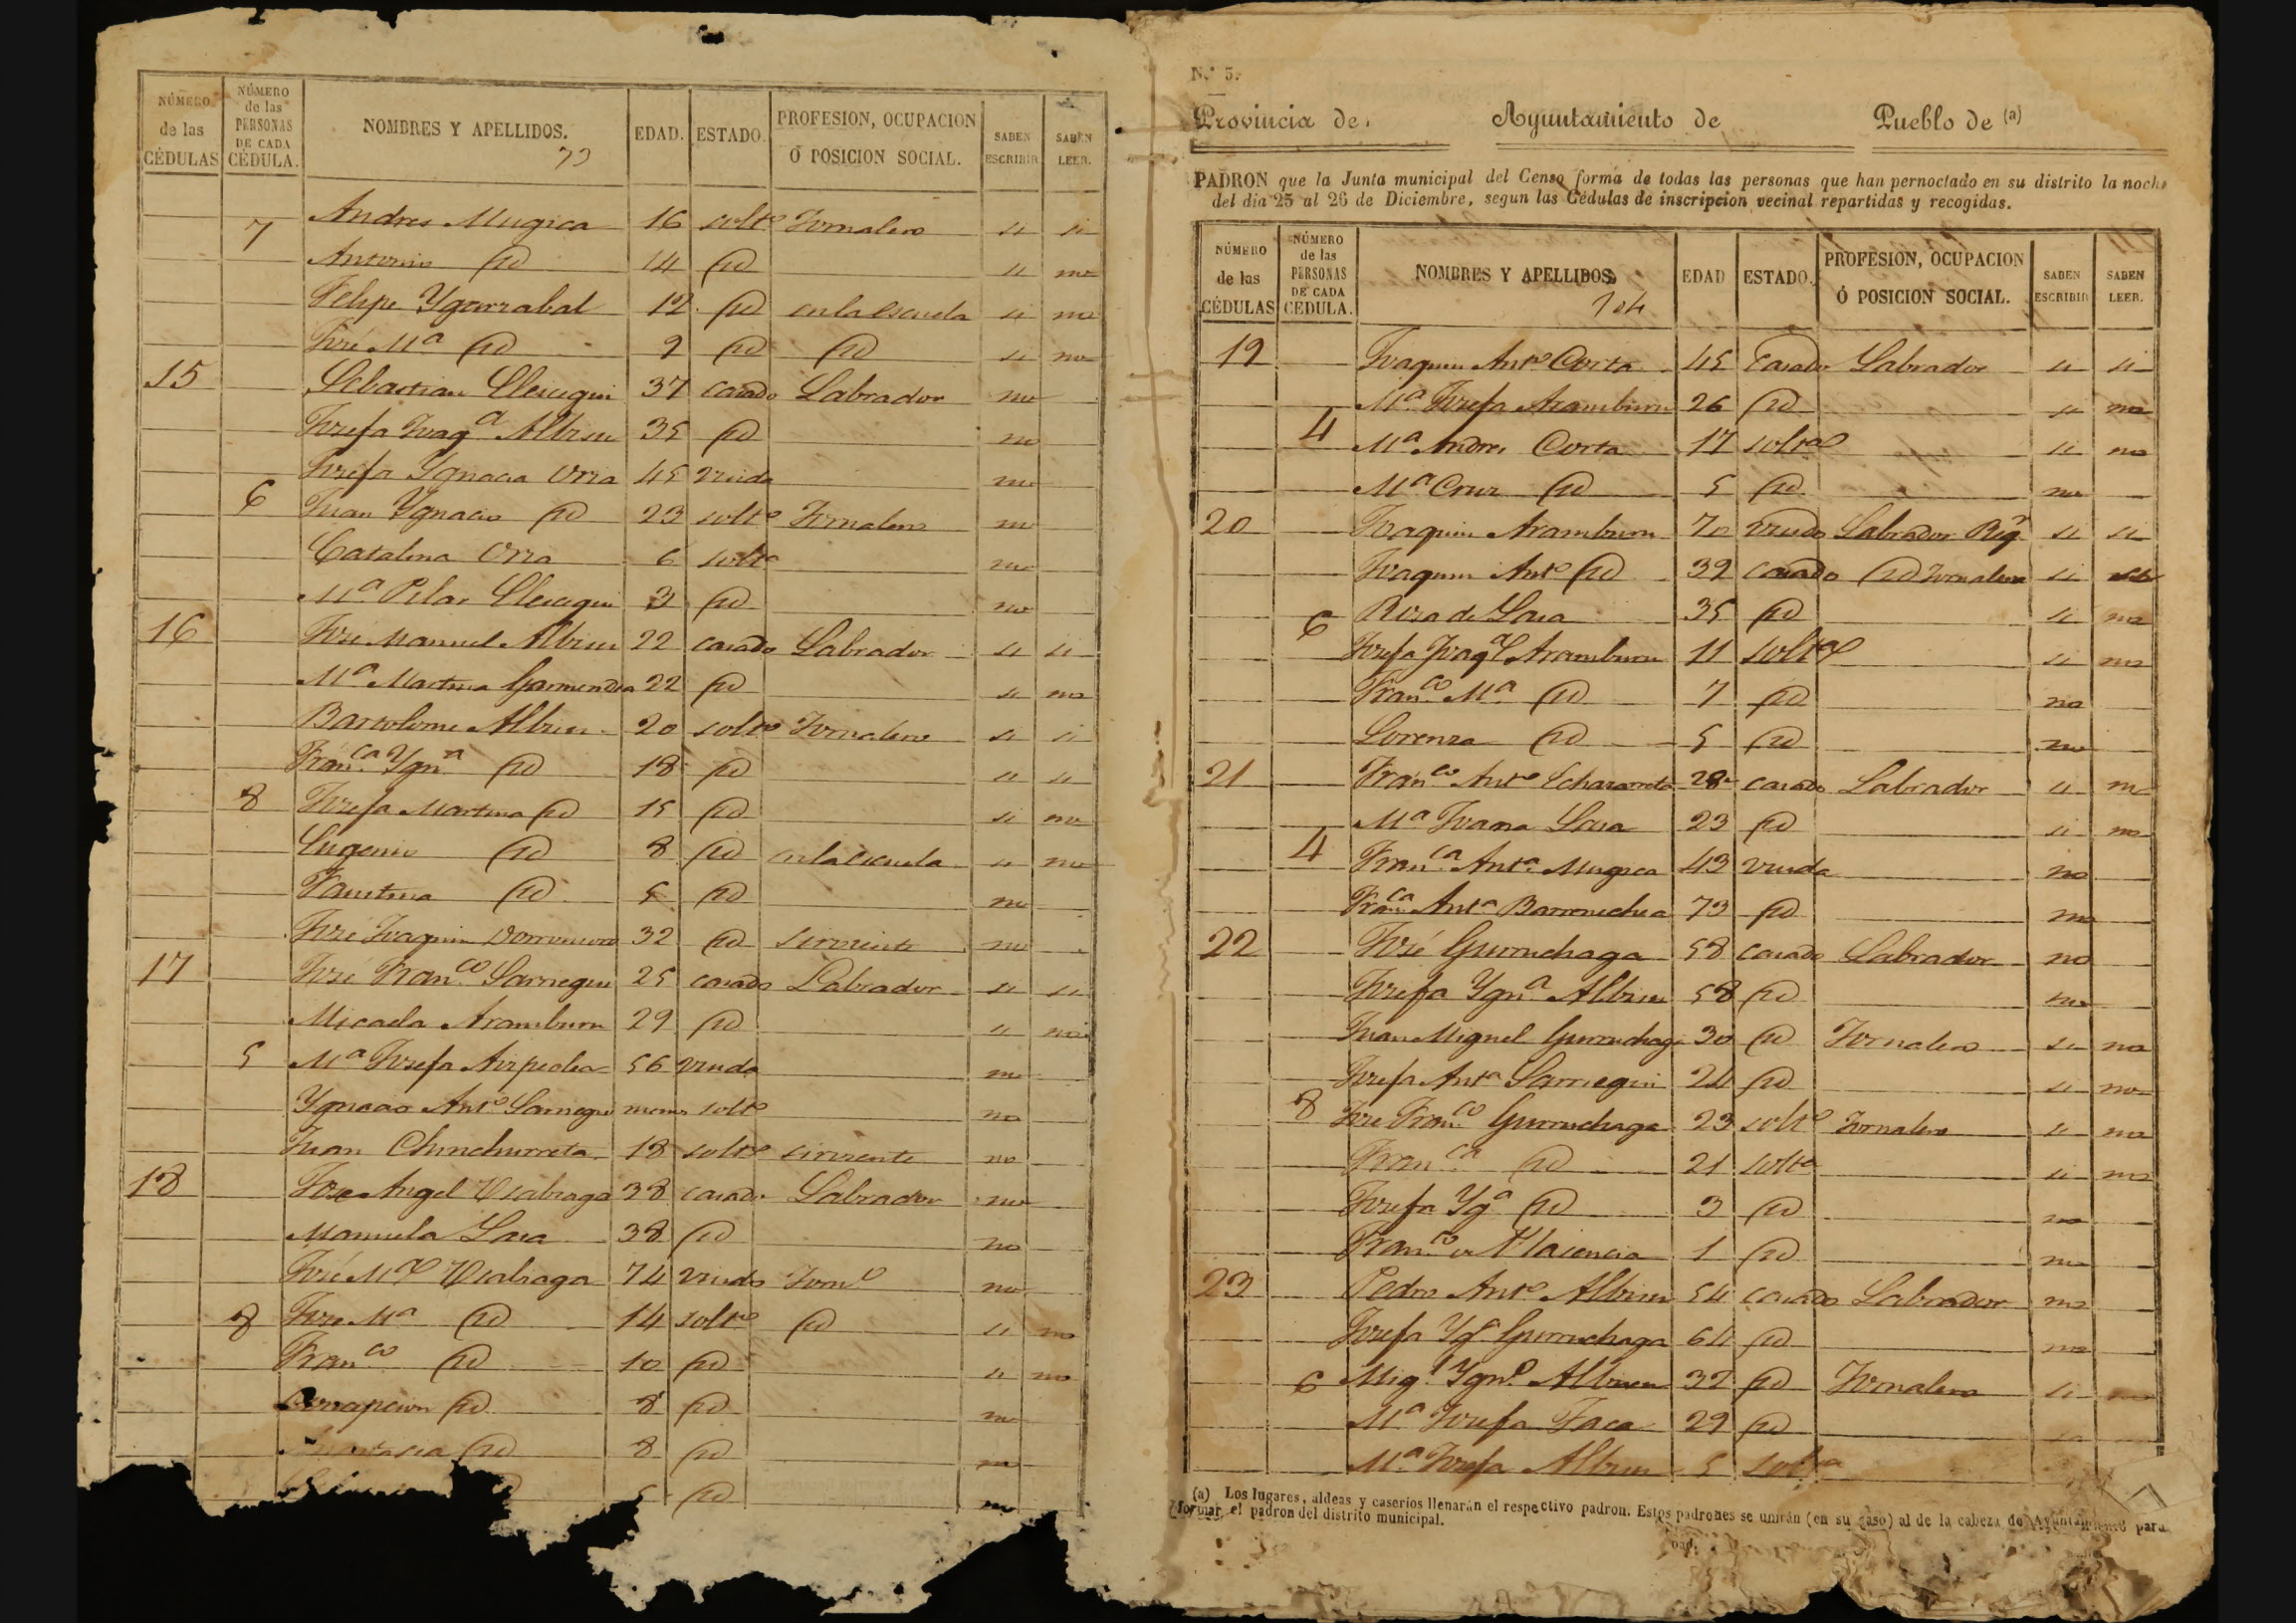 NÚMERO de las CÉDULAS NÚMERO de las PERSONAS DE CADA CÉDULA. NOMBRES Y APELLIDOS. EDAD. ESTADO. PROFESION, OCUPACION Ó POSICION SOCIAL. SABEN ESCRIBIR SABEN LEER.
7 Andres Mugica 16 solto Jornalero si si
Antonio id 14 id si no
Felipe Ygarzabal 12 id en la escuela si no
José Ma id 9 id id si no
15 Sebastian 37 casado Labrador no
Josefa Joaqa Albisu 35 id no
Josefa Ygnacia Oria 45 viuda no
6 Juan Ygnacio id 23 solto Jornalero no
Catalina Oria 6 solta no
Ma Pilar 3 id no
16 José Manuel Albisu 22 casado Labrador si si
Ma Martina Garmendia 22 id si no
Bartolome Albisu 20 solto Jornalero si si
Franca Ygna id 18 id si si
8 Josefa Martina id 15 id si no
Eugenio id 8 id en la escuela si no
Faustina id 5 id no
José Joaquin 32 id sirviente no
17 José Franco Sarregui 25 casado Labrador si si
Micaela Aramburu 29 id si no
5 Ma Josefa Azpeolea 56 viuda no
Ygnacio Anto Sarregui solto no
Juan Chinchurreta 18 solto sirviente no
18 Jose Angel Usabiaga 38 casado Labrador no
Manuela Lasa 38 id no
José Ma Usabiaga 74 viudo Jorno no
8 Jose Ma id 14 solto id si no
Franco id 10 id si no
id 8 id no
Anastasia id 8 id no
5 id no
N.º 5.
Provincia de Ayuntamiento de Pueblo de (a)
PADRON que la Junta municipal del Censo forma de todas las personas que han pernoctado en su distrito la noche
del dia 25 al 26 de Diciembre, segun las Cédulas de inscripcion vecinal repartidas y recogidas.
NÚMERO de las CÉDULAS NÚMERO de las PERSONAS DE CADA CEDULA. NOMBRES Y APELLIDOS. EDAD ESTADO. PROFESION, OCUPACION Ó POSICION SOCIAL. SABEN ESCRIBIR SABEN LEER.
104
19 Joaquin Anto Corta 45 casado Labrador si si
Ma Josefa Aramburu 26 id si no
4 Ma Andres Corta 17 solta si no
Ma Cruz id 5 id no
20 Joaquin Aramburu 70 viudo Labrador si si
Joaquin Anto id 39 casado id Jornalero si
6 Rosa de Lasa 35 id si no
Josefa Joaqa Aramburu 11 solta si no
Franco Ma id 7 id no
Lorenza id 5 id no
21 Franco Anto Echazarreta 28 casado Labrador si no
Ma Juana Lasa 23 id si no
4 Franca Anta Mugica 43 viuda no
Franca Anta Barrenechea 73 id no
22 José Gurruchaga 58 casado Labrador no
Josefa Ygna Albisu 58 id no
Juan Miguel Gurruchaga 30 id Jornalero si no
Josefa Anta Sarregui 24 id si no
8 José Franco Gurruchaga 23 solto Jornalero si no
Franca id 21 solta si no
Josefa Yga id 3 id no
Franco de Plasencia 1 id no
23 Pedro Anto Albisu 54 casado Labrador no
Josefa Yga Gurruchaga 64 id no
6 Migl Ygno Albisu 32 id Jornalero si no
Ma Josefa 29 id
Ma Josefa Albisu 5 solta
(a) Los lugares, aldeas y caseríos llenarán el respectivo padron. Estos padrones se unirán (en su caso) al de la cabeza de Ayuntamiento para
formar el padron del distrito municipal.